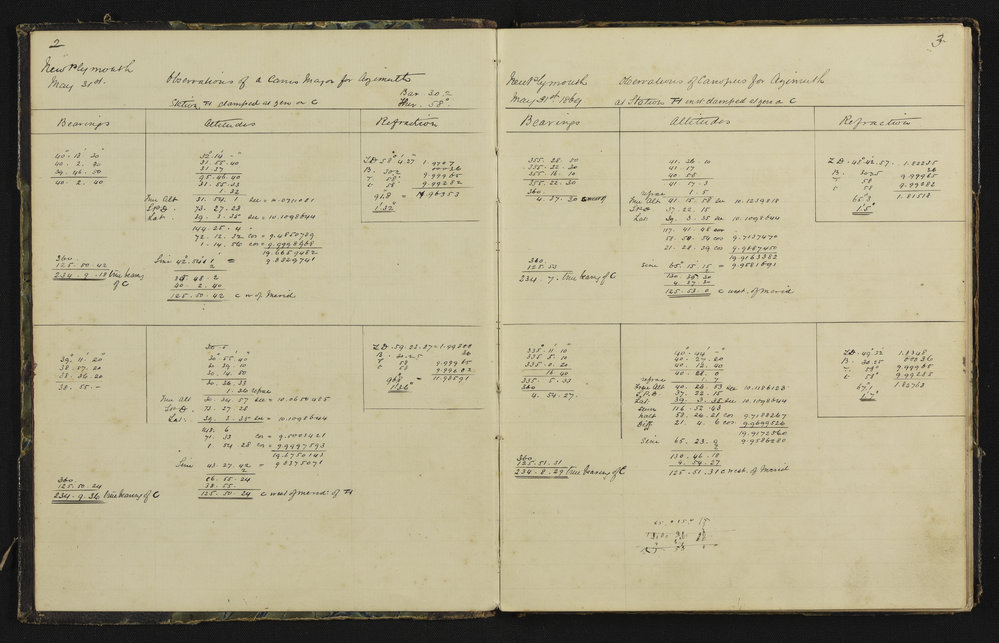 2
New Plymouth
May 31st.
Observations of a Canis Major for Azimuth
Bar. 30.2
Ther. 58°
Station H clamped at zero on C
Bearings
Altitudes
Refraction
40° 13' 20"
40 . 2 . 20
39 . 46 . 50
40 . 2 . 40
32° 14' - "
31 . 55 . 40
31 . 37
95 . 46 . 40
31 . 55 . 33
1 . 32
True Alt 31 . 54 . 1 sec = 10.0711081
S.P.D. 73 . 27 . 28
Lat. 39 . 3 . 35 sec = 10.1098644
144 . 25 . 4
72 . 12 . 32 cos = 9.4850789
1 . 14 . 56 cos = 9.9998968
19.6659482
Sine 42° 54' 1" = 9.8329741
2
85 . 48 . 2
40 . 2 . 40
125 . 50 . 42 C W of Merid
Z.D. 58° 4' 27 1.9707
B. 30.2 00036
T. 58° 9.99965
t 58 9.99282
91.8 = 1.96353
1' 32"
360
125 . 50 . 42
234 . 9 . 18 true bearing
of C
39° 11' 20"
38 . 57 . 20
38 . 36 . 20
38 . 55 . -
30° 55' 40"
30 . 39 . 10
30 . 14 . 50
30 . 36 . 33
1 . 36 refrac
True Alt 30 . 34 . 57 sec = 10.0650485
S.P.D. 73 . 27 . 28
Lat. 39 . 3 . 35 sec = 10.1098644
143 . 6
71 . 33 cos = 9.5003421
1 . 54 . 28 cos = 9.9997593
19.6750143
Sine 43 . 27 . 42 = 9.8375071
2
86 . 55 . 24
38 . 55
125 . 50 . 24 C west of merid: of H
Z.D. 59 . 23 . 27 = 1.99200
B. 30.25 36
T 58 9.99965
t 58 9.99282
96.8 = 1.98591
1' 36"
360
125 . 50 . 24
234 . 9 . 36 true bearing of C
3
New Plymouth
May 31st 1869
Observations of Canopus for Azimuth
at Station H inst. clamped at zero on C
Bearings
Altitudes
Refraction
355 . 28 . 50
355 . 22 . 30
355 . 16 . 10
355 . 22 . 30
360
4 . 37 . 30
41 . 26 . 10
41 . 17
40 . 58
41 17 . 3
refrac 1 . 5
True Alt 41 . 15 . 58 sec 10.1239018
S.P.D 37 . 22 . 15
Lat. 39 . 3 . 35 sec 10.1098644
117 . 41 . 48
58 . 50 . 54 cos 9.7137470
21 . 28 . 39 cos 9.9687450
19.9163382
Sine 65° 15' 15 = 9.9581691
2
130 . 30 . 30
4 . 37 . 30
125 . 53 . 0 C west of Merid
Z.D. 48° 42' 57" 1.82235
B. 30.25 36
T 58 9.99965
t 58 9.99282
65.3 1.81518
1' 5"
360
125 . 53
234 . 7 . true bearing of C
335° 11' 10"
335 . 5 . 10
335 . 0 . 20
16 . 40
335 . 5 . 33
360
4 . 54 . 27
40° 44' - "
40 . 27 . 20
40 . 12 . 40
40 . 28 . 0
refrac 1 . 7
True Alt 40 . 26 . 53 sec 10.1186123
S.P.D. 37 . 22 . 15
Lat. 39 . 3 . 35 sec 10.1098644
sum 116 . 52 . 43
half 58 . 26 . 21 cos 9.7188267
Diff 21 . 4 . 6 cos 9.9699526
19.9172560
Sine 65 . 23 . 9 9.9586280
2
130 . 46 . 18
4 . 54 . 27
125 . 51 . 31 C west of Merid
Z.D. 49° 32' 1.8348
B. 30.25 00036
T. 58° 9.99965
t 58° 9.99282
67.1 1.82763
1' 7"
360
125 . 51 . 31
234 . 8 . 29 true bearing of C
65 . 15 . 15